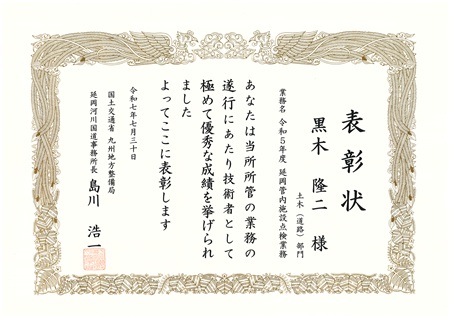 表彰状
土木（道路）部門
黒木 隆二 様
業務名 令和5年度 延岡管内施設点検業務
あなたは当所所管の業務の
遂行にあたり技術者として
極めて優秀な成績を挙げられ
ました
よってここに表彰します
令和七年七月三十日
国土交通省 九州地方整備局
延岡河川国道事務所長 島川 浩一